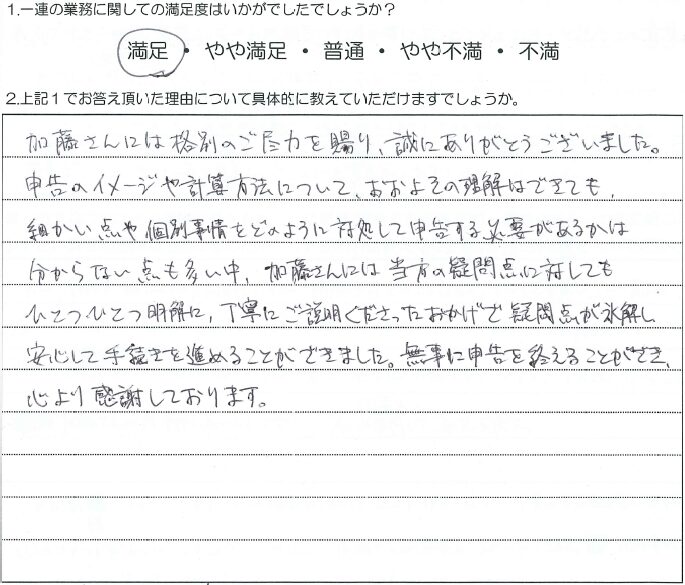 1.一連の業務に関しての満足度はいかがでしたでしょうか？
満足 ・ やや満足 ・ 普通 ・ やや不満 ・ 不満
2.上記1でお答え頂いた理由について具体的に教えていただけますでしょうか。
加藤さんには格別のご尽力を賜り、誠にありがとうございました。
申告のイメージや計算方法について、おおよその理解はできても、
細かい点や個別事情をどのように対処して申告する必要があるかは
分からない点も多い中、加藤さんには当方の疑問点に対しても
ひとつひとつ明解に、丁寧にご説明くださったおかげで疑問点が氷解し
安心して手続きを進めることができました。無事に申告を終えることができ、
心より感謝しております。